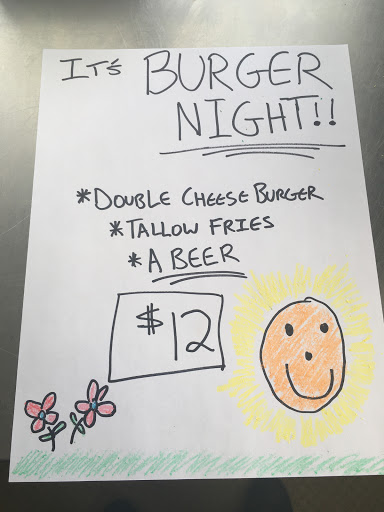 IT'S BURGER
NIGHT!!
*DOUBLE CHEESE BURGER
*TALLOW FRIES
*A BEER
$12